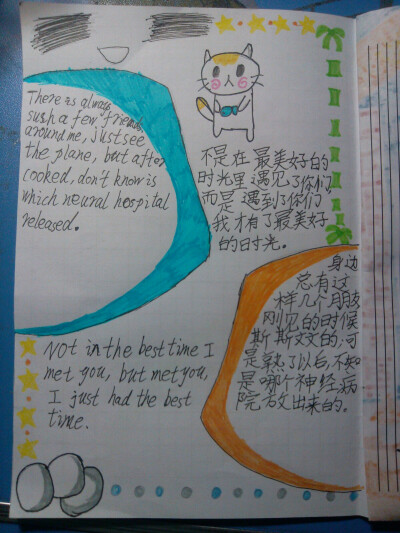 There as always
sush a few friends,
around me, just see
the plane, but after
cooked, don't know is
which neural hospital
released.
不是在最美好的
时光里遇见了你们,
而是遇到了你们
我才有了最美好
的时光。
身边
总有这
样几个朋友
刚见的时候
斯斯文文的,可
是熟了以后,不知
是哪个神经病
院放出来的。
Not in the best time I
met you, but met you,
I just had the best
time.